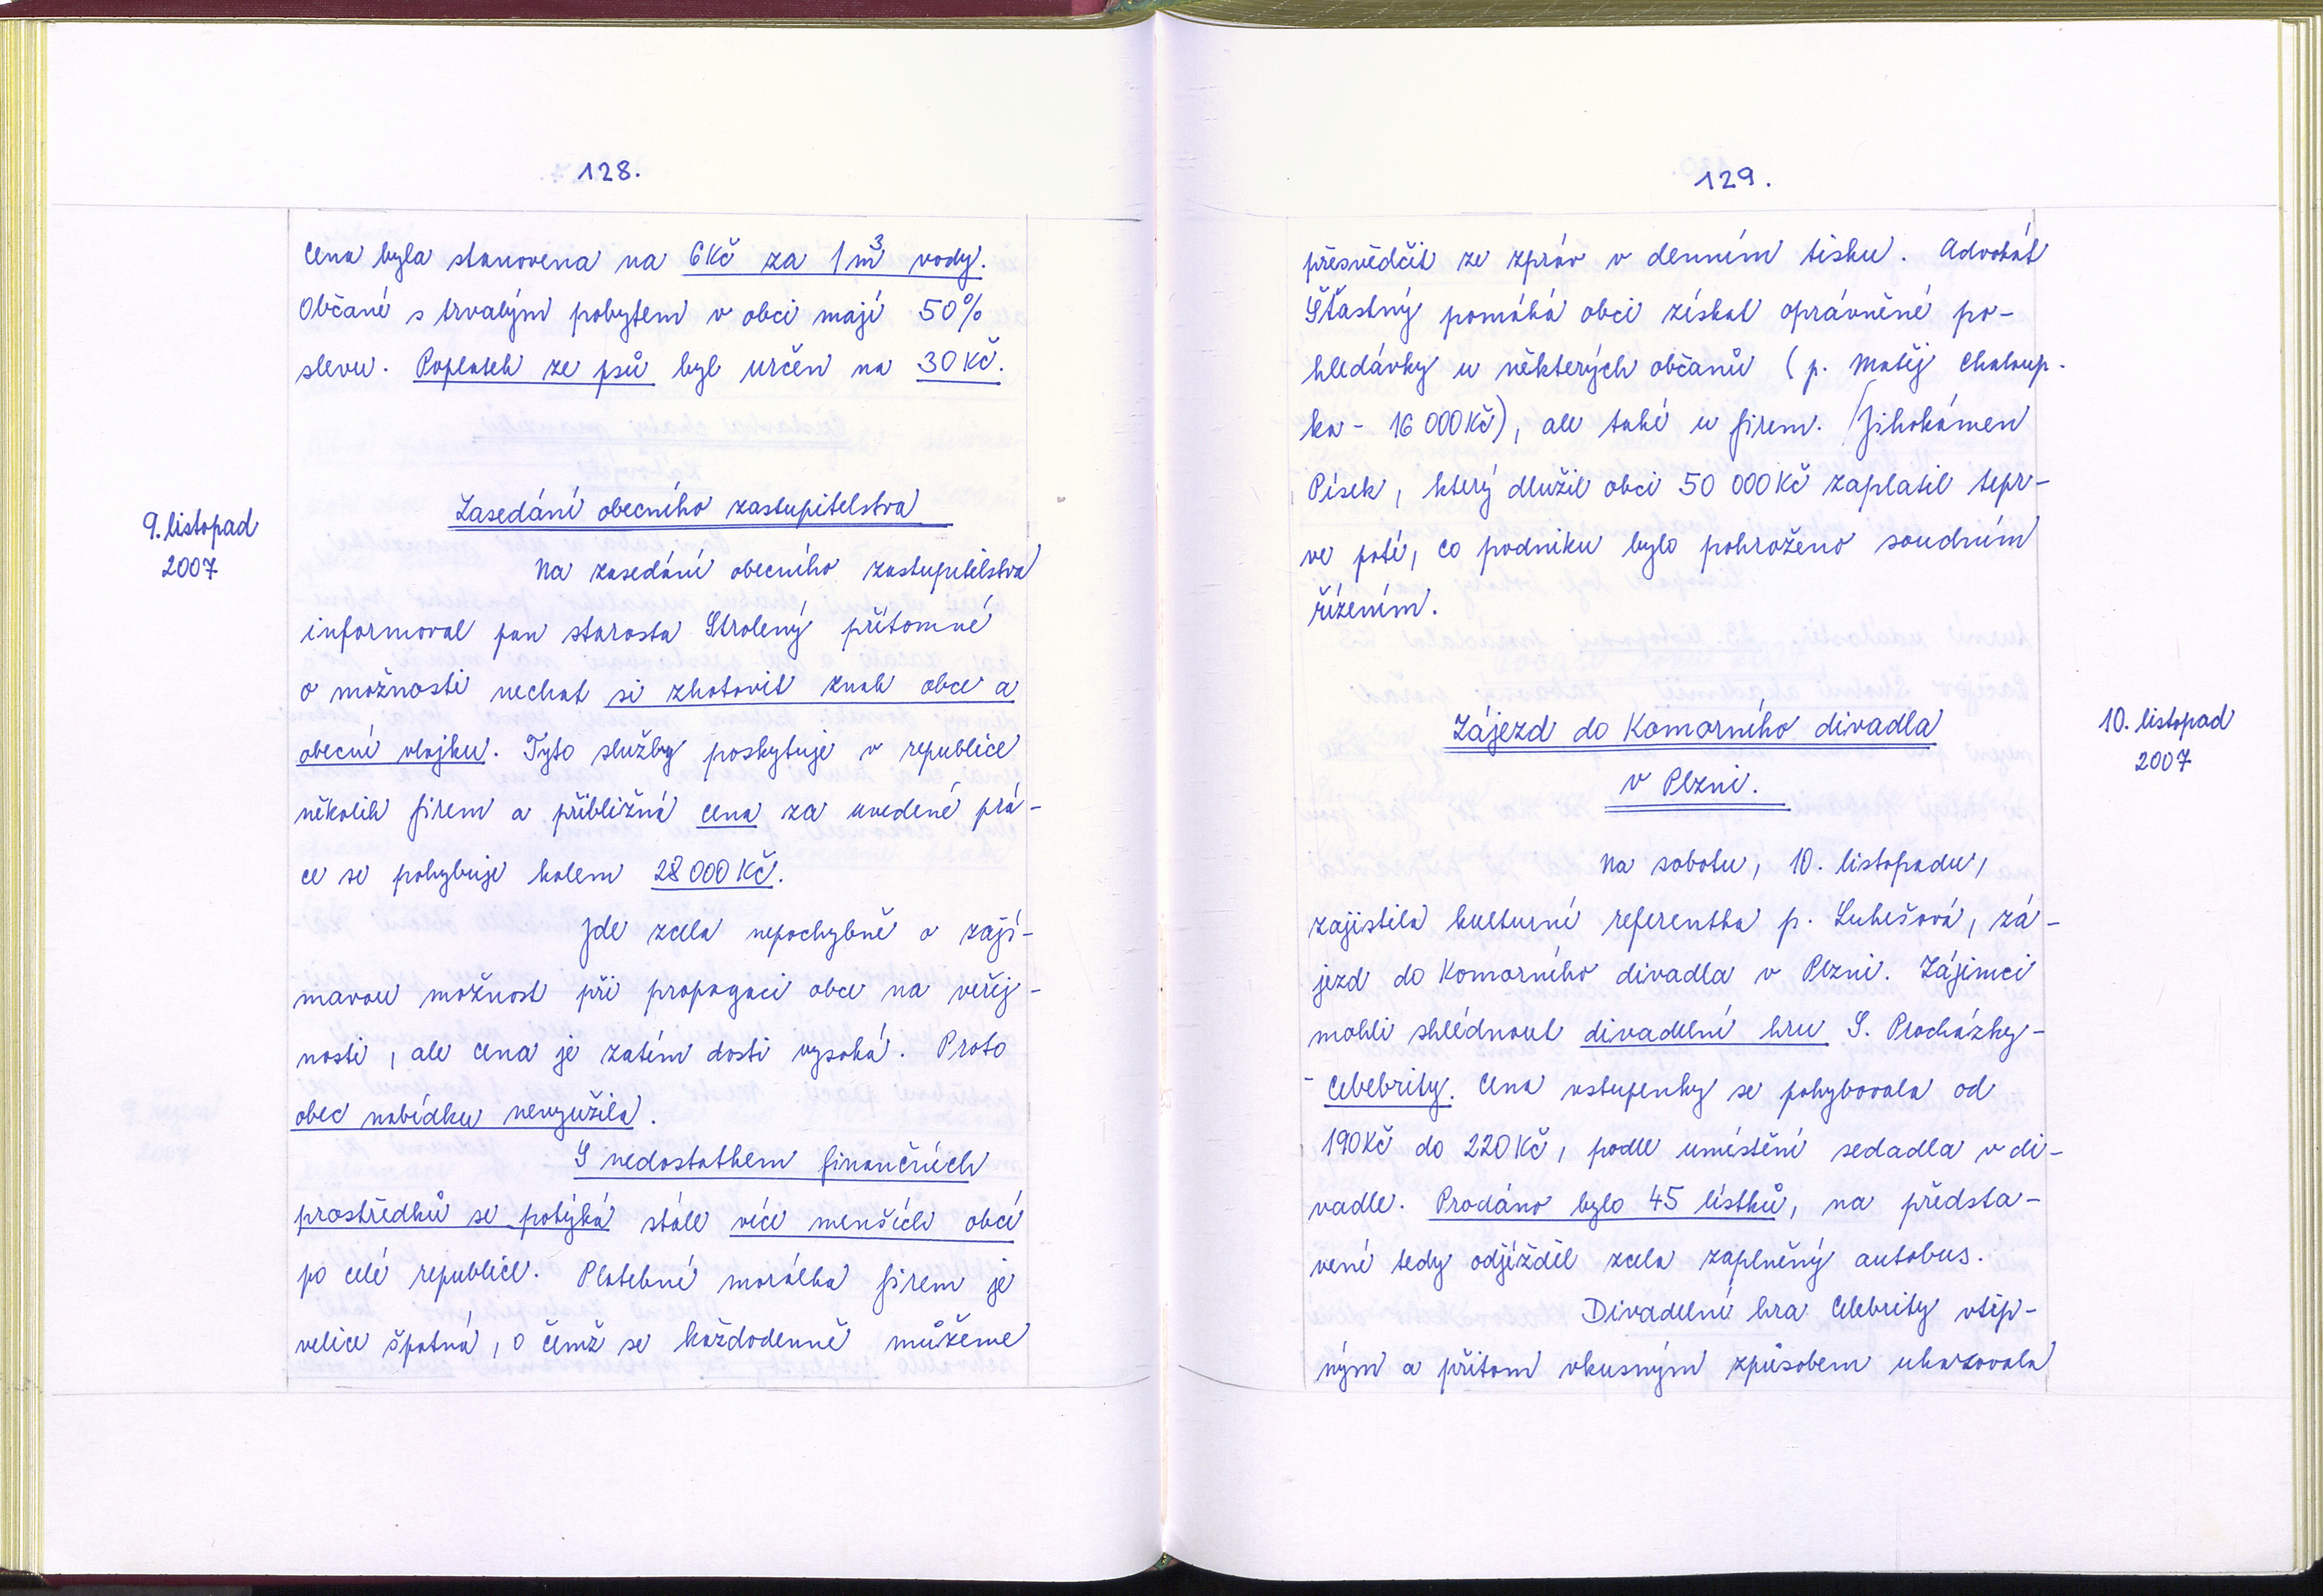 128.
Cena byla stanovena na 6 Kč za 1 m³ vody.
Občané s trvalým pobytem v obci mají 50%
slevu. Poplatek ze psů byl určen na 30 Kč.
9. listopad
2007
Zasedání obecního zastupitelstva
Na zasedání obecního zastupitelstva
informoval pan starosta Strolený přítomné
o možnosti nechat si zhotovit znak obce a
obecní vlajku. Tyto služby poskytuje v republice
několik firem a přibližná cena za uvedené prá-
ce se pohybuje kolem 28 000 Kč.
Jde zcela nepochybně o zají-
mavou možnost při propagaci obce na veřej-
nosti, ale cena je zatím dosti vysoká. Proto
obec nabídku nevyužila.
S nedostatkem finančních
prostředků se potýká stále více menších obcí
po celé republice. Platební morálka firem je
velice špatná, o čemž se každodenně můžeme
129.
přesvědčit ze zpráv v denním tisku. Advokát
Šťastný pomáhá obci získat oprávněné po-
hledávky u některých občanů (p. Matěj Chaloup-
ka - 16 000 Kč), ale také u firem. Jihokámen
Písek, který dlužil obci 50 000 Kč zaplatil tepr-
ve poté, co podniku bylo pohroženo soudním
řízením.
Zájezd do Komorního divadla
v Plzni.
10. listopad
2007
Na sobotu, 10. listopadu,
zajistila kulturní referentka p. Lukešová, zá-
jezd do Komorního divadla v Plzni. Zájemci
mohli shlédnout divadelní hru S. Procházky-
- Celebrity. Cena vstupenky se pohybovala od
190 Kč do 220 Kč, podle umístění sedadla v di-
vadle. Prodáno bylo 45 lístků, na předsta-
vení tedy odjížděl zcela zaplněný autobus.
Divadelní hra Celebrity vtip-
ným a přitom vkusným způsobem ukazovala